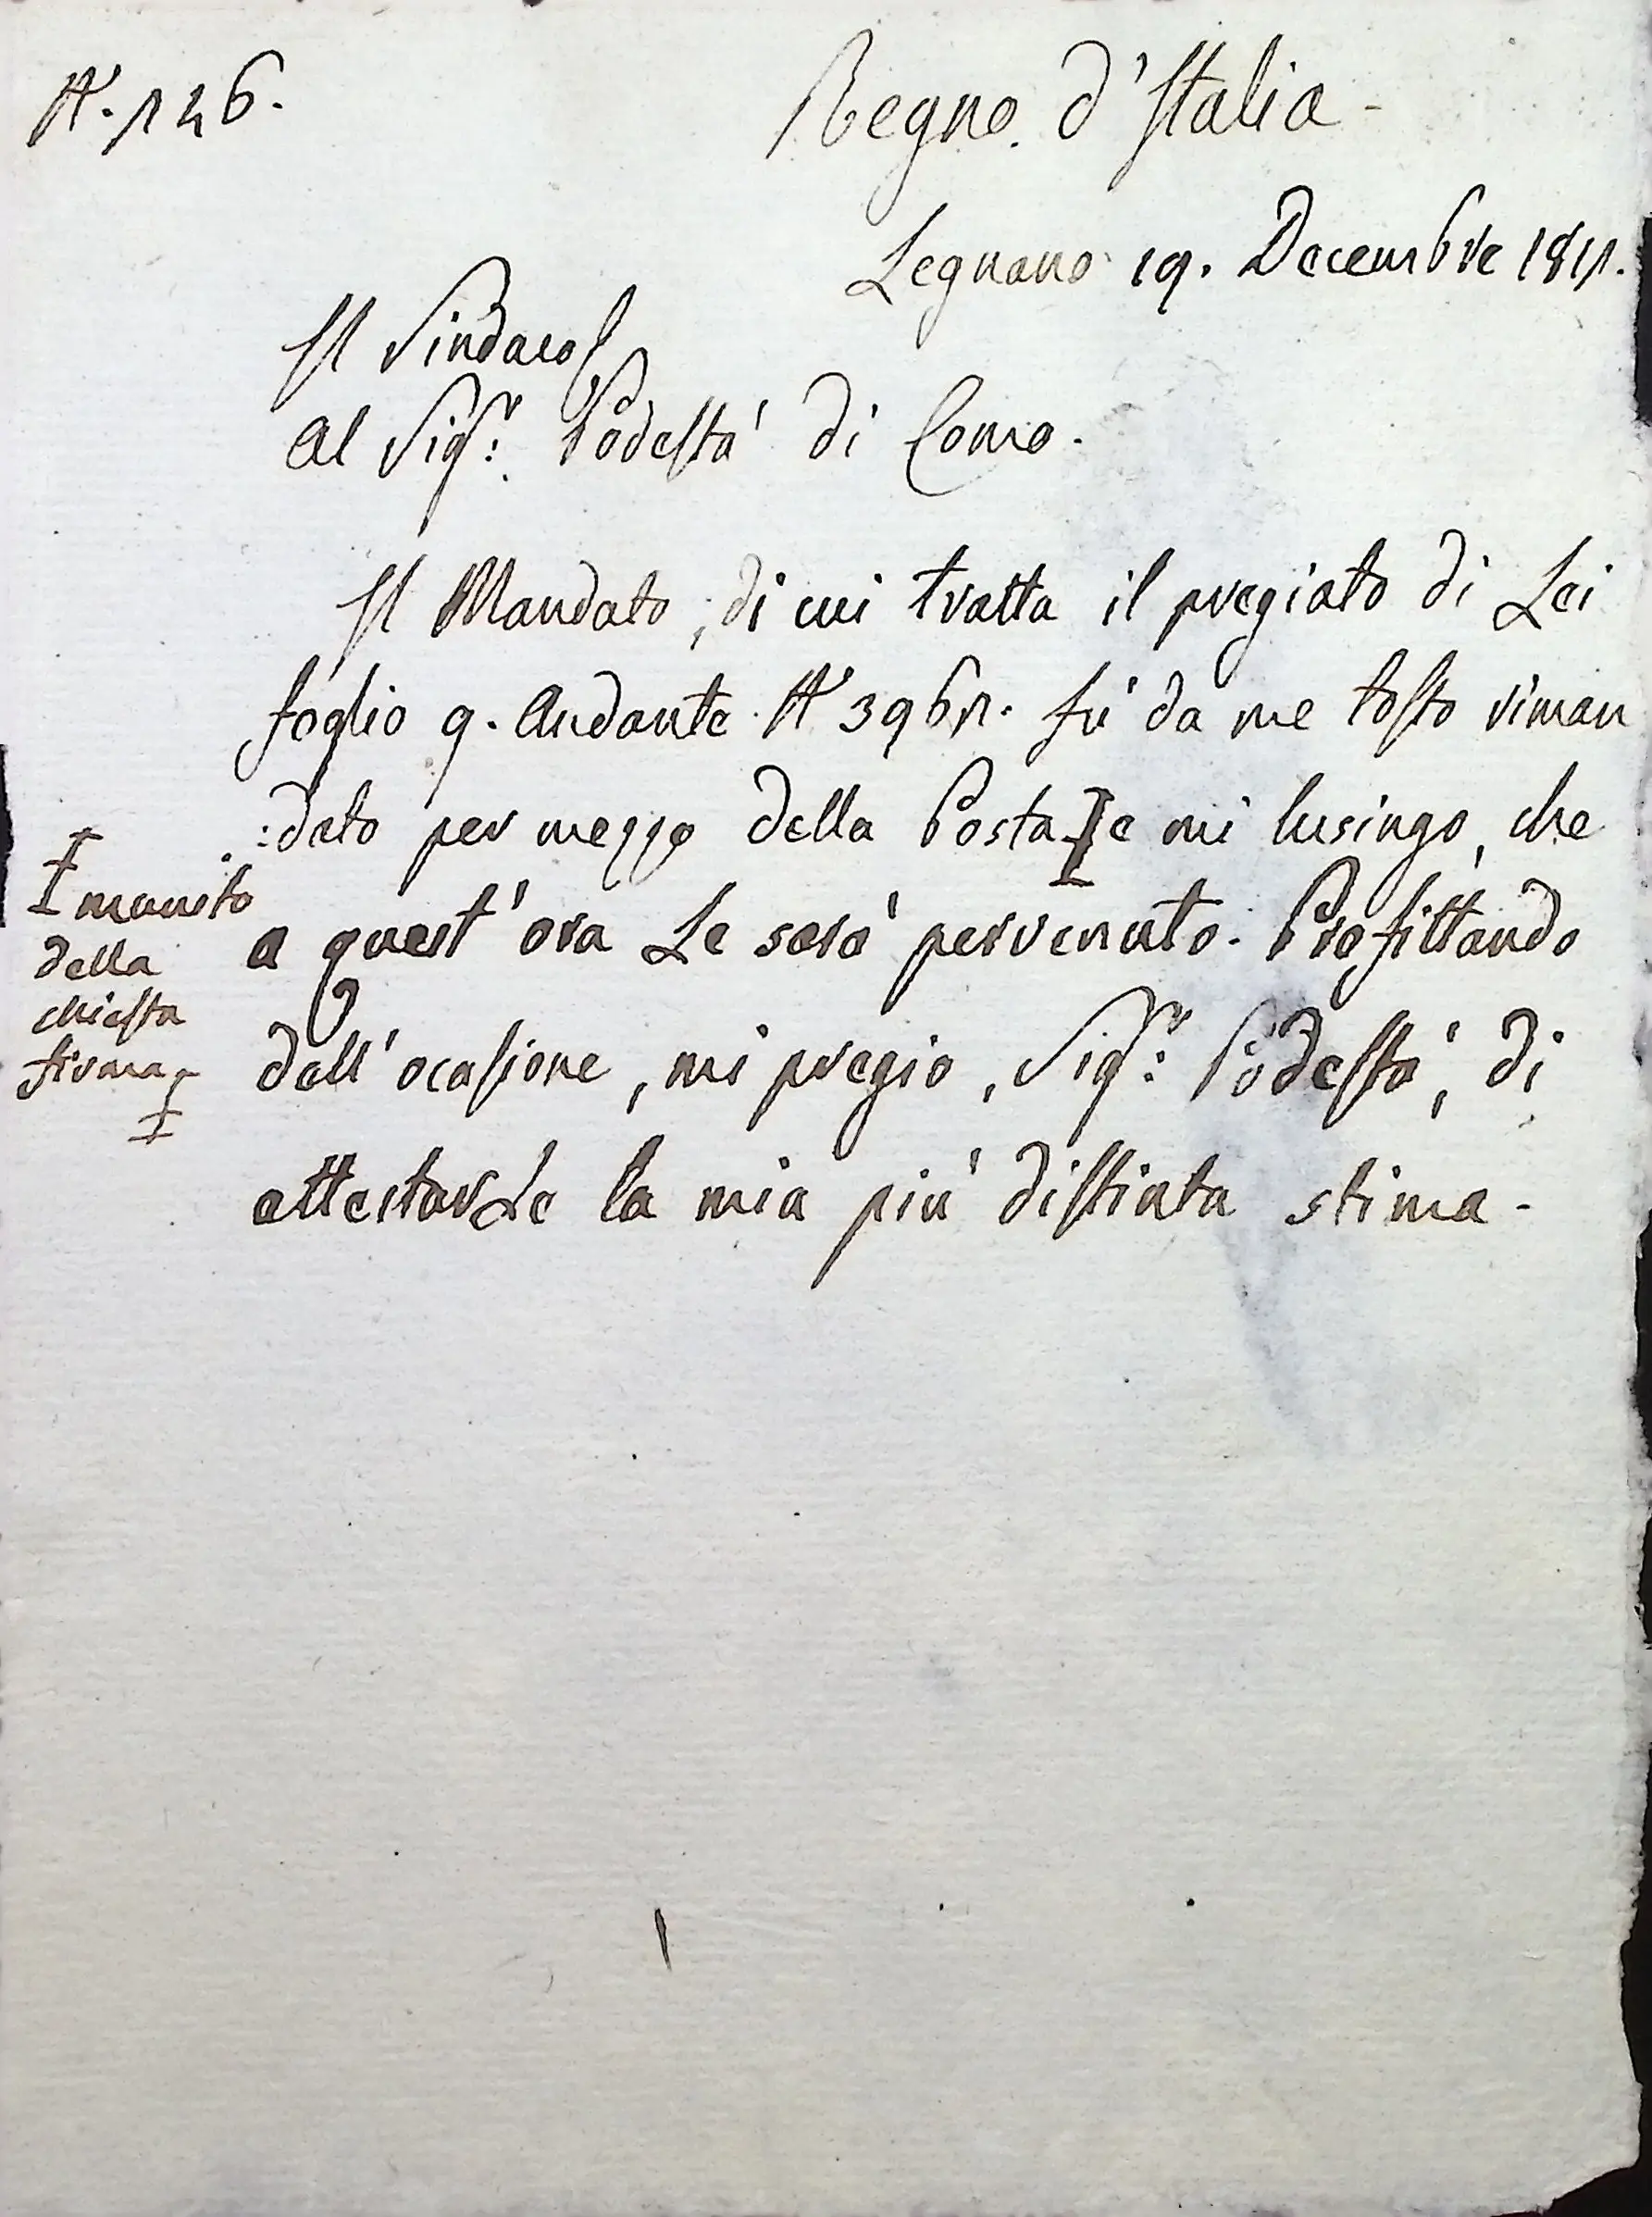 N.° 126.
Regno d'Italia -
Legnano 19. Decembre 1811.
Il Sindaco
Al Sig.r: Podestà di Como.
Il Mandato, di cui tratta il pregiato di Lei
foglio 9. Andante N.° 3961. fù da me tosto riman
:dato per mezzo della Posta ‡ e mi lusingo, che
a quest'ora Le sarà pervenuto. Profittando
dell'ocasione, mi pregio, Sig.r: Podestà, di
attestarLe la mia più distinta stima -
‡ munito
della
chiesta
firma -
‡